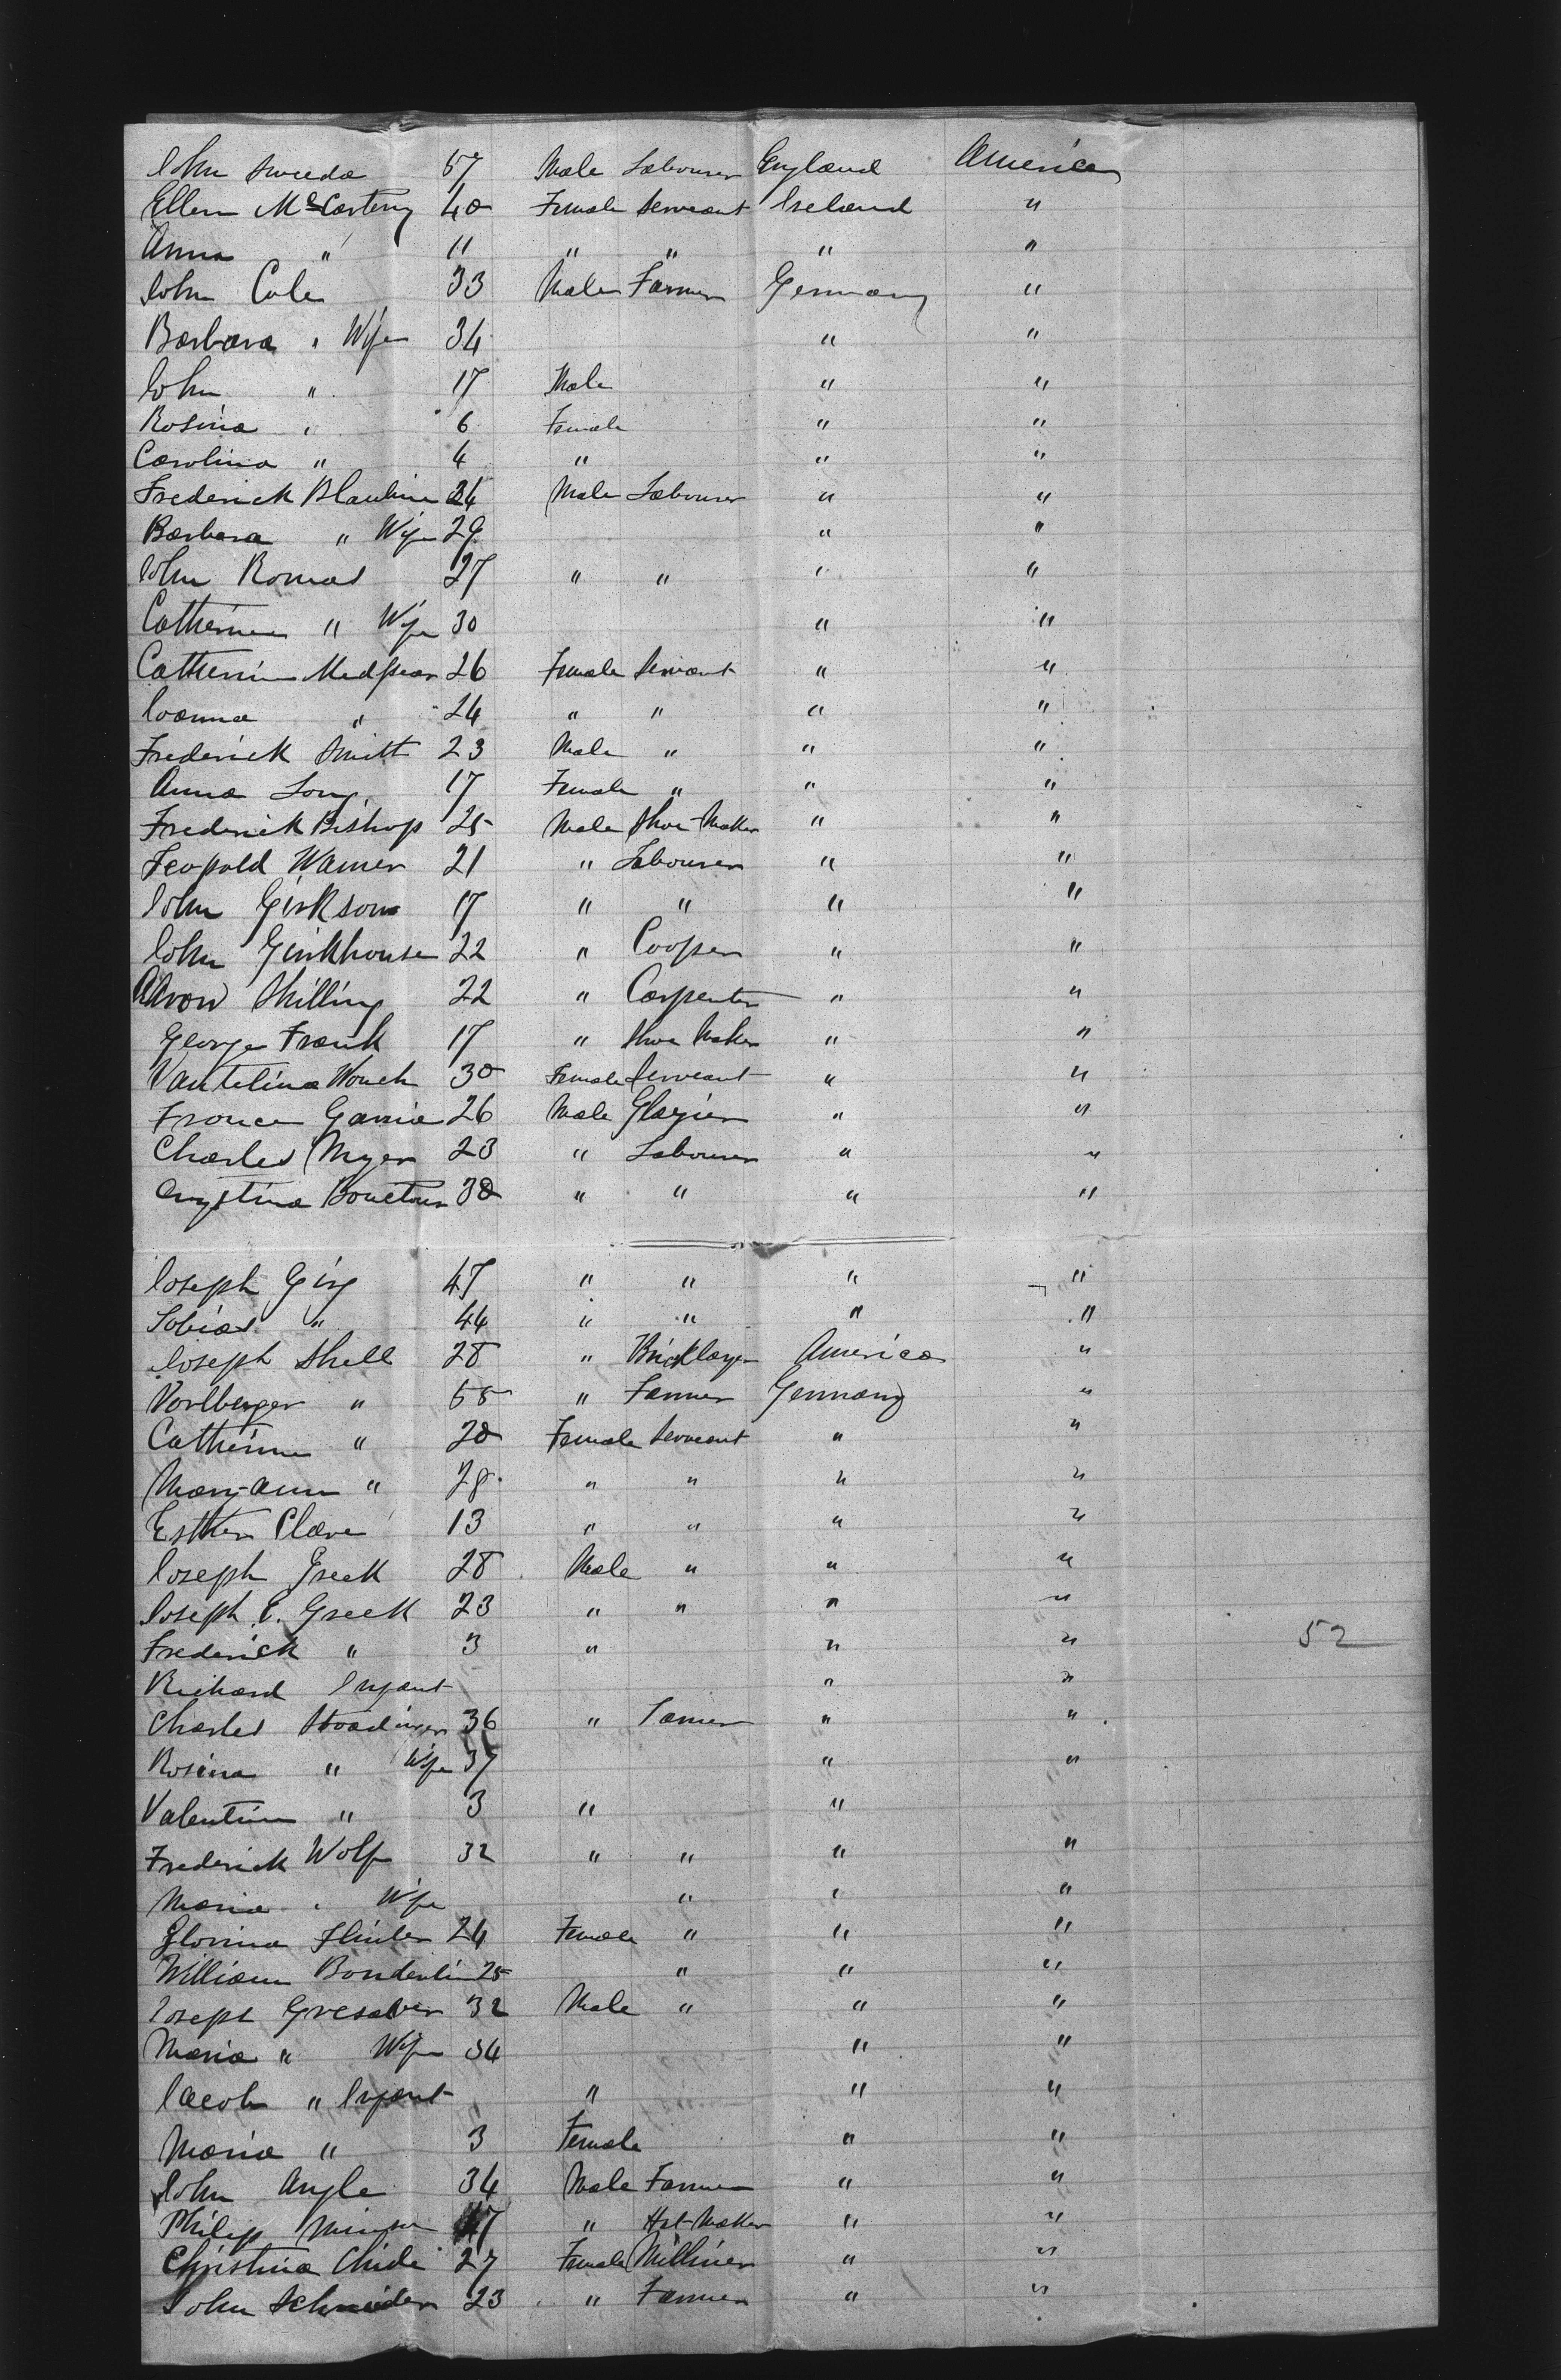 John Sweeda 57 Male Labourer England America
Ellen McCarteny 40 Female Serveant Ireland "
Anna " 11 " " " "
John Cole 33 Male Farmer Germany "
Barbara " Wife 34 " "
John " 17 Male " "
Rosina " 6 Female " "
Carolina " 4 " " "
Frederick 24 Male Labourer " "
Barbara " Wife 29 " "
John Romas 27 " " " "
Catherine " Wife 30 " "
Catherine 26 Female Servant " "
Ioanna " 24 " " " "
Frederick Smitt 23 Male " " "
Anna Long 17 Female " " "
Frederick Bishop 25 Male Shoe-Maker " "
Leopold Warner 21 " Labourer " "
John Girkson 17 " " " "
John Girkhouse 22 " Cooper " "
Aaron Shilling 22 " Carpenter " "
George Frank 17 " Shoe Maker " "
Vantelina 30 Female Serveant " "
26 Male Glazier " "
Charles Myer 23 " Labourer " "
30 " " " "
Joseph Girg 47 " " " "
Tobias " 44 " " " "
Joseph Shell 28 " Bricklayer America "
Vorlberger " 55 " Farmer Germany "
Catherine " 20 Female Serveant " "
Mary-Ann " 28 " " " "
Esther Clave 13 " " " "
Joseph Greek 28 Male " " "
Joseph C. Greek 23 " " " "
Frederick " 3 " " " 52
Richard Infant " "
Charles 36 " Farmer " "
Rosina " Wife 37 " "
Valentine " 3 " "
Frederick Wolf 32 " " " "
Maria " Wife " " "
24 Female " " "
William 25 " " "
Joseph 32 Male " " "
Maria " Wife 34 " "
Jacob " Infant " " "
Maria " 3 Female " "
John Angle 34 Male Farmer " "
Philip 47 " Hat-Maker " "
Christina 27 Female Milliner " "
John Schneider 23 " Farmer " "